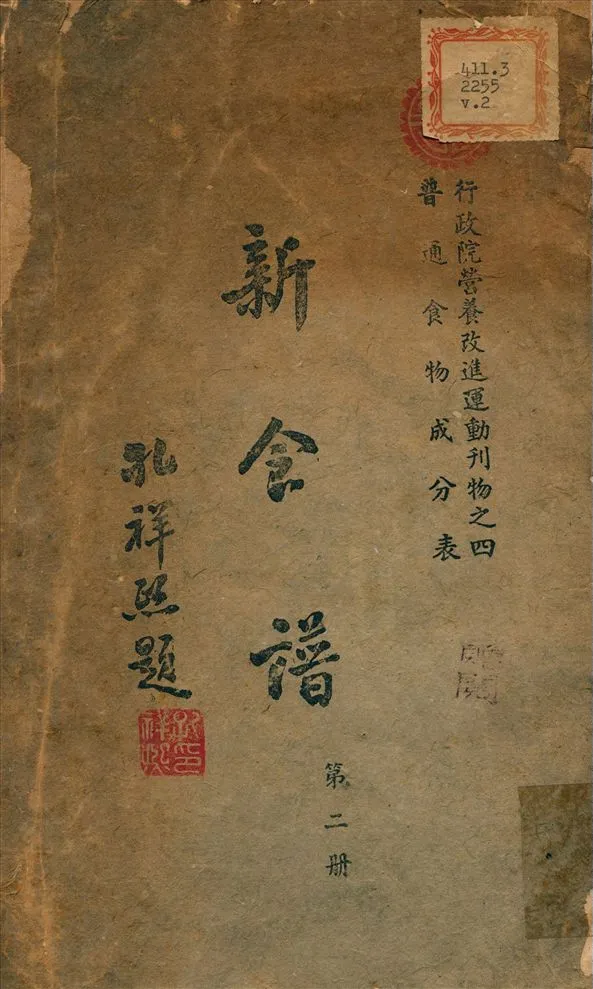 411.3
2255
v.2
行政院營養改進運動刊物之四
普通食物成分表
新食譜
第二册
孔祥熙題